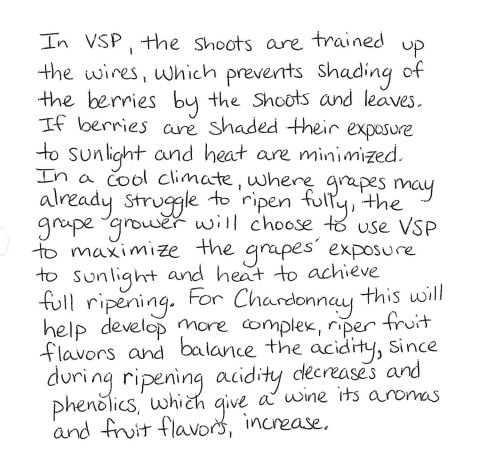 In VSP, the shoots are trained up
the wires, which prevents shading of
the berries by the shoots and leaves.
If berries are shaded their exposure
to sunlight and heat are minimized.
In a cool climate, where grapes may
already struggle to ripen fully, the
grape grower will choose to use VSP
to maximize the grapes' exposure
to sunlight and heat to achieve
full ripening. For Chardonnay this will
help develop more complex, riper fruit
flavors and balance the acidity, since
during ripening acidity decreases and
phenolics, which give a wine its aromas
and fruit flavors, increase.